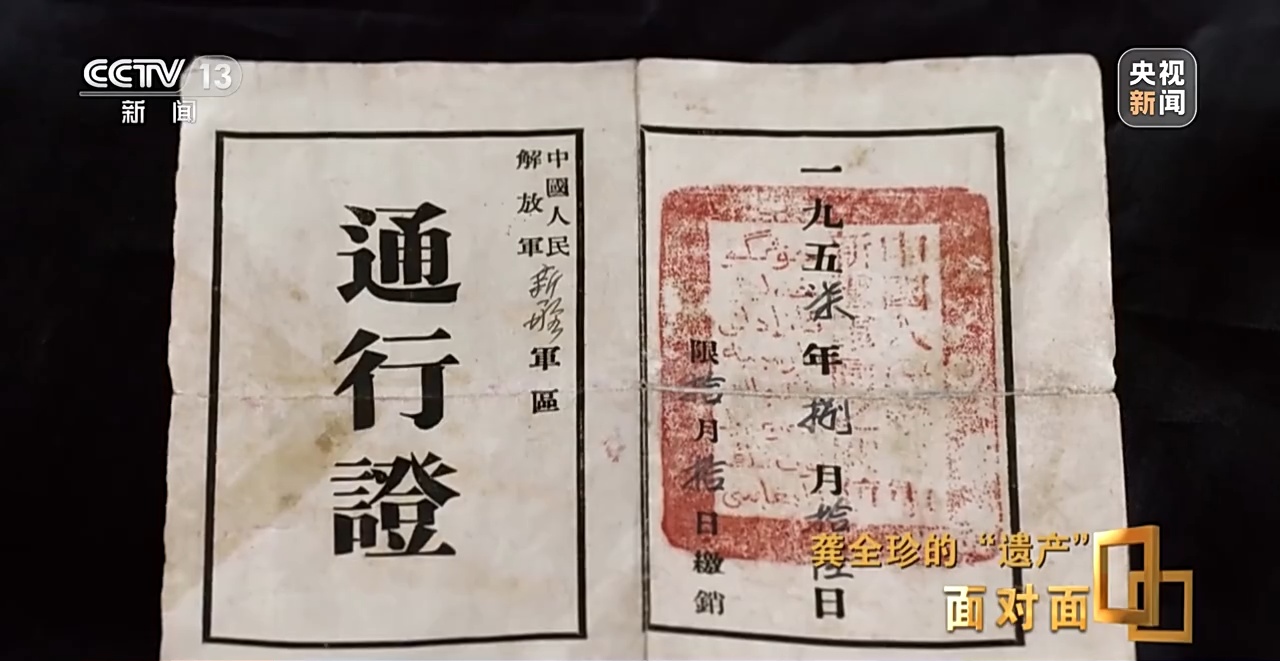 CCTV 13
新闻
央视
新闻
中國人民
解放軍新疆軍區
通行證
一九五柒年捌月拾陸日
限拾月拾日繳銷
龚全珍的“遗产”
面对面